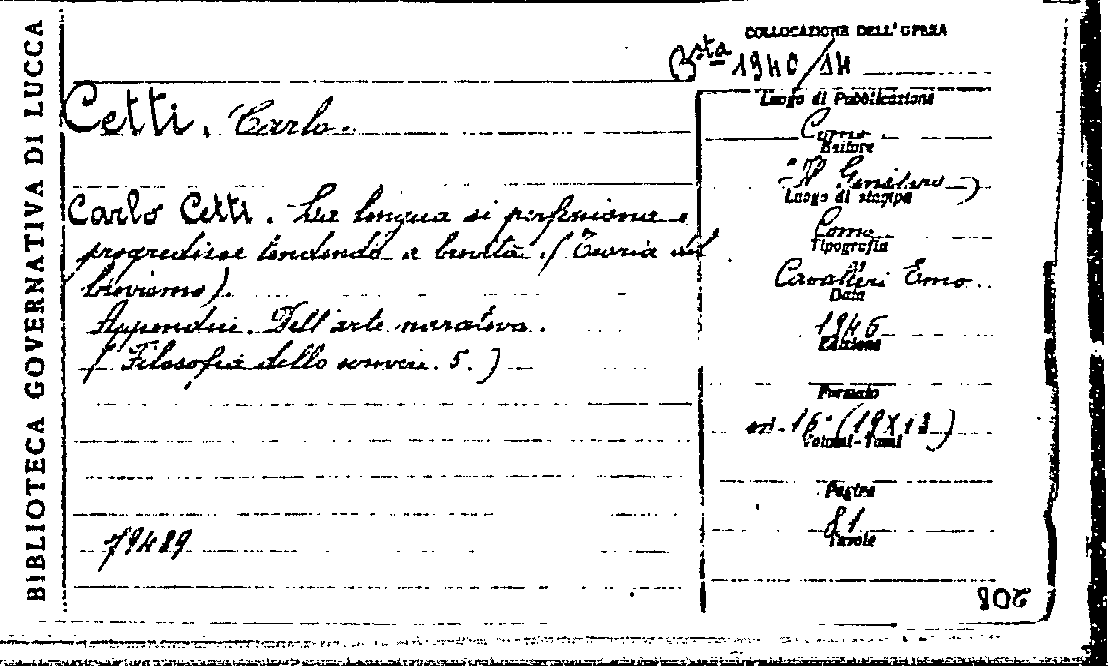 BIBLIOTECA GOVERNATIVA DI LUCCA
COLLOCAZIONE DELL'OPERA
Bsta 1940/14
Cetti, Carlo.
Carlo Cetti. La lingua si perfeziona e
progredisce tendendo a brevità. (Teoria del
brevismo).
Appendice. Dell'arte narrativa.
(Filosofia dello scrivere. 5.)
79489
Luogo di Pubblicazione
Como
Editore
"Il
Luogo di stampa
Como
Tipografia
Cavalleri Emo
Data
1946
Edizione
Formato
in-16° (19x13)
Volumi-Tomi
Pagine
81
Tavole
208